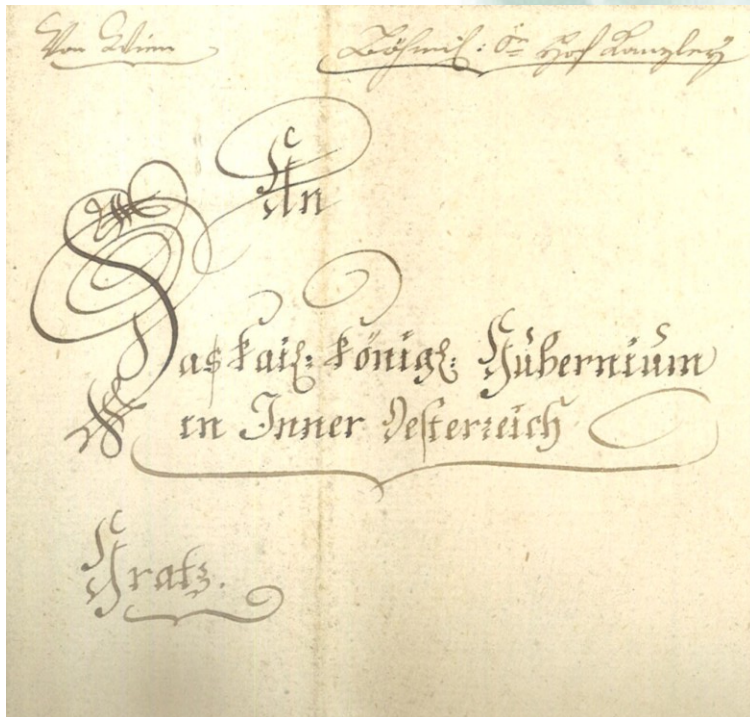 Von Wien Böhmis: Ö: Hof Kanzley
An
Das kais: königl: Gubernium
in Inner Oesterreich
Gratz.